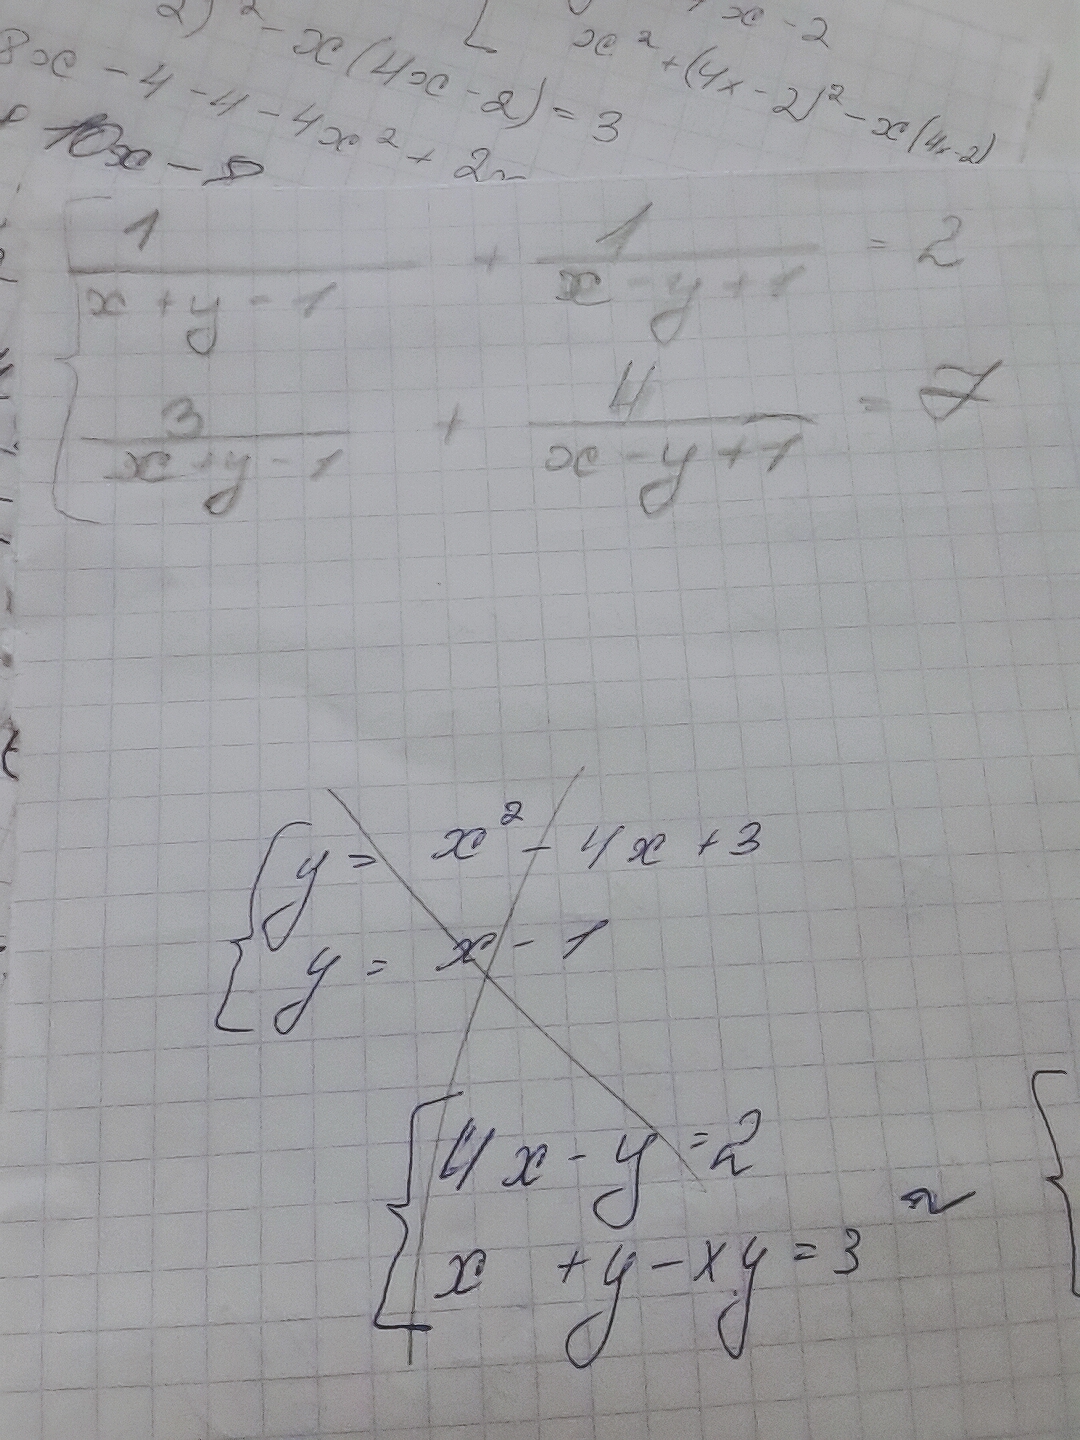 2)² - x(4x-2) = 3
8x - 4 - 4 - 4x² + 2x
10x - 8
x - 2
x² + (4x - 2)² - x(4x-2)
{ 1/(x + y - 1) + 1/(x - y + 1) = 2
3/(x + y - 1) + 4/(x - y + 1) = 7
{ y = x² - 4x + 3
y = x - 1
{ 4x - y = 2
x + y - xy = 3 ~ {